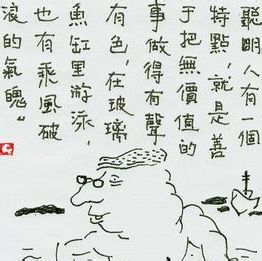 聰明人有一個
特點，就是善
于把無價值的
事做得有聲
有色，在玻璃
魚缸里游泳，
也有乘風破
浪的氣魄。